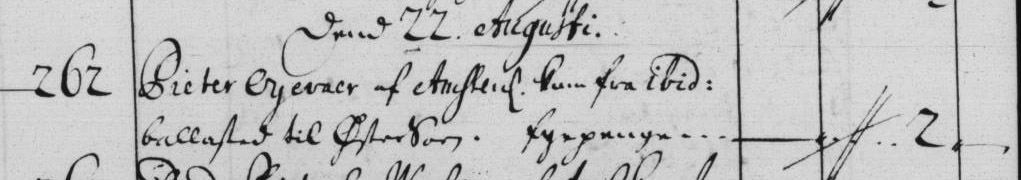 Dend 22. Augusti.
262 Pieter Eyevaer af Amsterd. kom fra Ibid:
ballasted til ØsterSøen. fyrpenge - - - 2